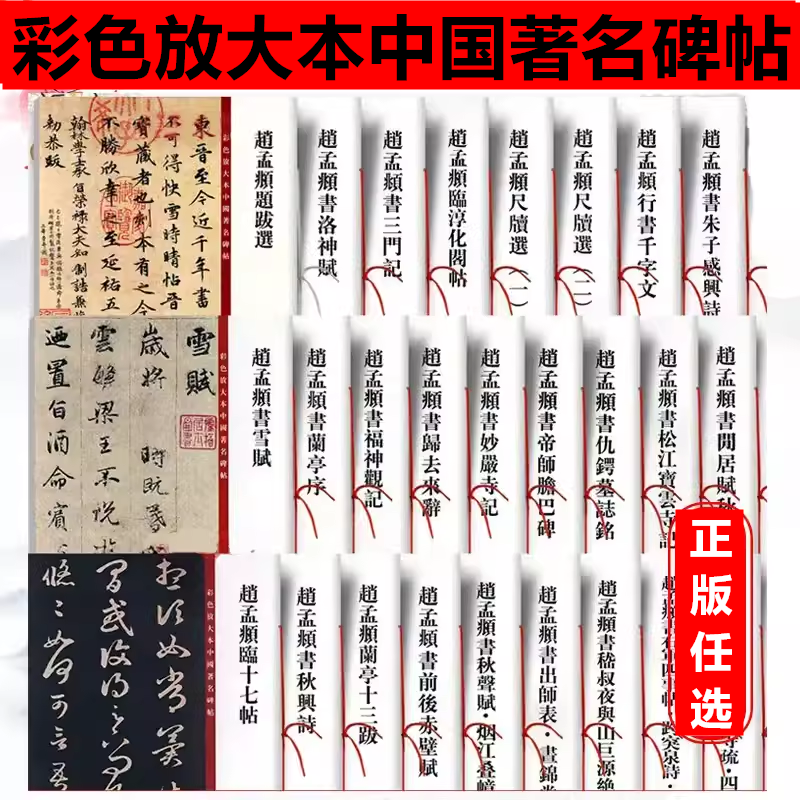 彩色放大本中国著名碑帖
東晉至今近千年書
不可得快雪時晴帖晉
寶藏者也刻本有之今
不勝欣幸之至延祐五
翰林學士承旨榮祿大夫知制誥兼脩
勑恭跋
彩色放大本中國著名碑帖
趙孟頫題跋選
趙孟頫書洛神賦
趙孟頫書三門記
趙孟頫臨淳化閣帖
趙孟頫尺牘選（一）
趙孟頫尺牘選（二）
趙孟頫行書千字文
趙孟頫書朱子感興詩
雪賦
歲將
時既
雲繁梁王不悅游
迺置旨酒命賓
彩色放大本中國著名碑帖
趙孟頫書雪賦
趙孟頫書蘭亭序
趙孟頫書福神觀記
趙孟頫書歸去來辭
趙孟頫書妙嚴寺記
趙孟頫書帝師膽巴碑
趙孟頫書仇鍔墓誌銘
趙孟頫書松江寶雲寺記
趙孟頫書閒居賦秋
彩色放大本中國著名碑帖
趙孟頫臨十七帖
趙孟頫書秋興詩
趙孟頫蘭亭十三跋
趙孟頫書前後赤壁賦
趙孟頫書秋聲賦·烟江叠嶂
趙孟頫書出師表·晝錦堂
趙孟頫書嵇叔夜與山巨源絶
正版任选